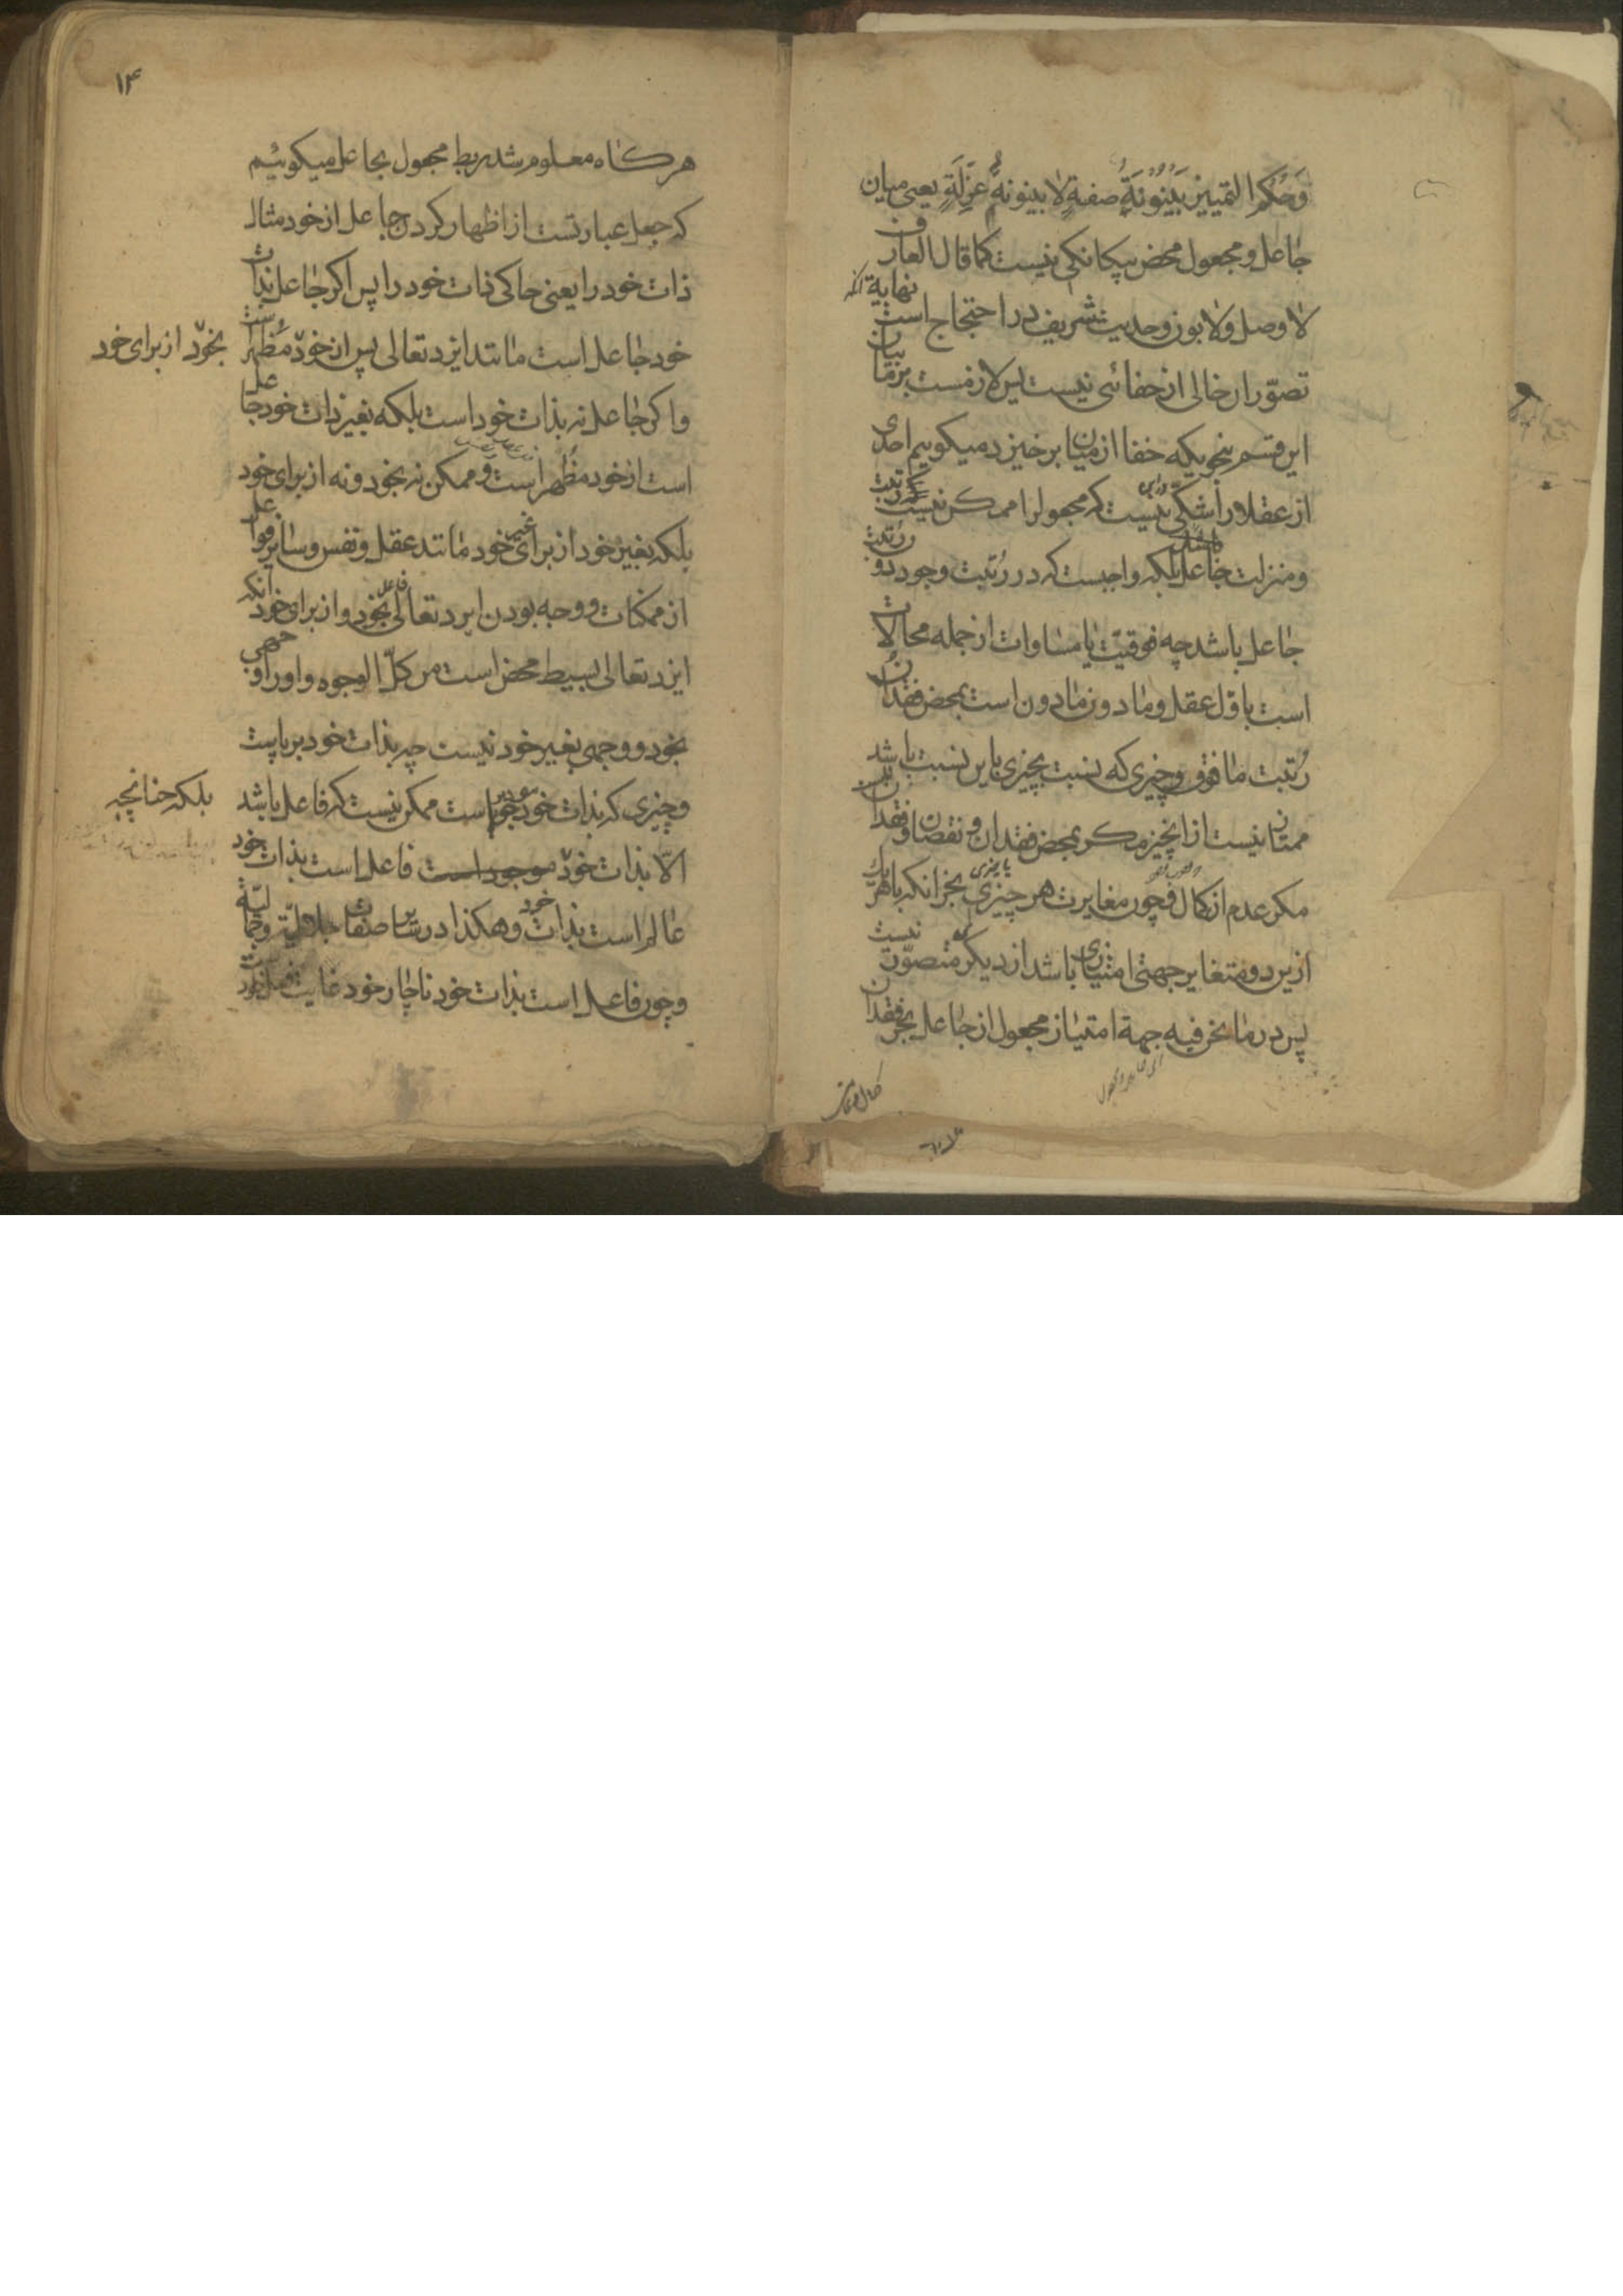 وَحُكْمُ التمييز بَيْنُونَةُ صفةٍ لا بينونةُ عَزْلَةٍ يعنى ميان
جاعل و مجعول محض بيكانكى نيست كما قال العارف
لا وصل ولا بون و حديث شريف در احتجاج است نهاية انكه
تصوّر ان خالى از خفائى نيست پس لازمست بر ما بيان
اين قسم بنحويكه خفا از ميان برخيزد ميكوييم احدى
از عقلا را شكى نيست كه مجعول را ممكن نيست كه رتبت
و منزلت جاعل باشد بلكه واجبست كه در رُتبت وجود دون رُتبت
جاعل باشد چه فوقيّت يا مساوات از جمله محالات
است باوّل عقل و مادون مادون است بمحض فقدان
رُتبت مافوق و چيزى كه نسبت بچيزى باين نسبت باشد
ممتاز نيست از انچيز مكر بمحض فقدان و نقصان و فقدان نيست
مكر عدم از كمال فچون مغايرت هر چيزى با چيزى بجز انكه با هر يك
ازين دو متغاير جهتى امتيازى باشد از ديكر متصوّر نيست
پس در ما نحن فيه جهة امتياز مجعول از جاعل بجز فقدان
كمال
۱۴
هر كاه معلوم شد ربط مجعول بجاعل ميكوييم
كه جعل عبارتست از اظهار كردن جاعل از خود مثال
ذات خود را يعنى حاكى ذات خود را پس اكر جاعل بذات
خود جاعل است مانند ايزد تعالى پس از خود مُظهر است
بخود از براى خود
و اكر جاعل نه بذات خود است بلكه بغير ذات خود جاعل
است از خود مُظهر است و ممكن نه بخود و نه از براى خود
بلكه بغير خود از براى غير خود مانند عقل و نفس و ساير فواعل
از ممكنات و وجه بودن ايزد تعالى فاعل بخود و از براى خود انكه
ايزد تعالى بسيط محض است من كلّ الوجوه و او را وجهى
بخود و وجهى بغير خود نيست چه بذات خود برپاست
و چيزى كه بذات خود موجود است ممكن نيست كه فاعل باشد
الّا بذات خود موجود است فاعل است بذات خود
بلكه چنانچه
عالم است بذات خود و هكذا در ساير صفات جلاليّه و جماليّه
و چون فاعل است بذات خود ناچار خود غايت فعل خود